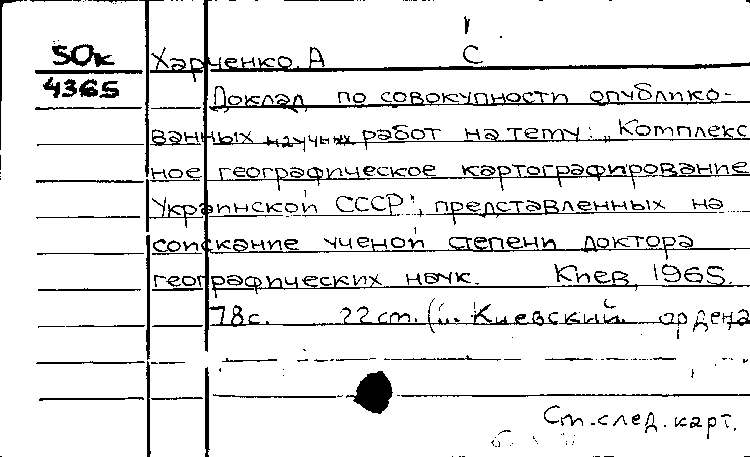 50к Харченко. А С
4365 Доклад по совокупности опублико-
ванных научных работ на тему: „Комплекс
ное географическое картографирование
Украинской СССР", представленных на
соискание ученой степени доктора
географических наук. Киев, 1965.
78с. 22 cm. Киевский ордена
Cm. след. карт.